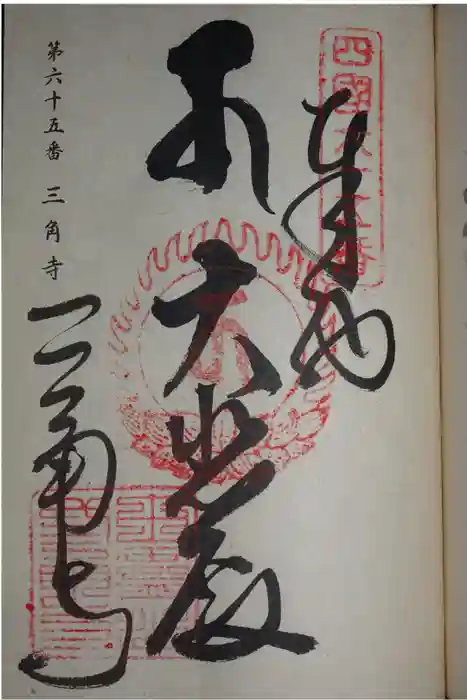 四國六十五番
奉納
大悲殿
三角寺
第六十五番 三角寺